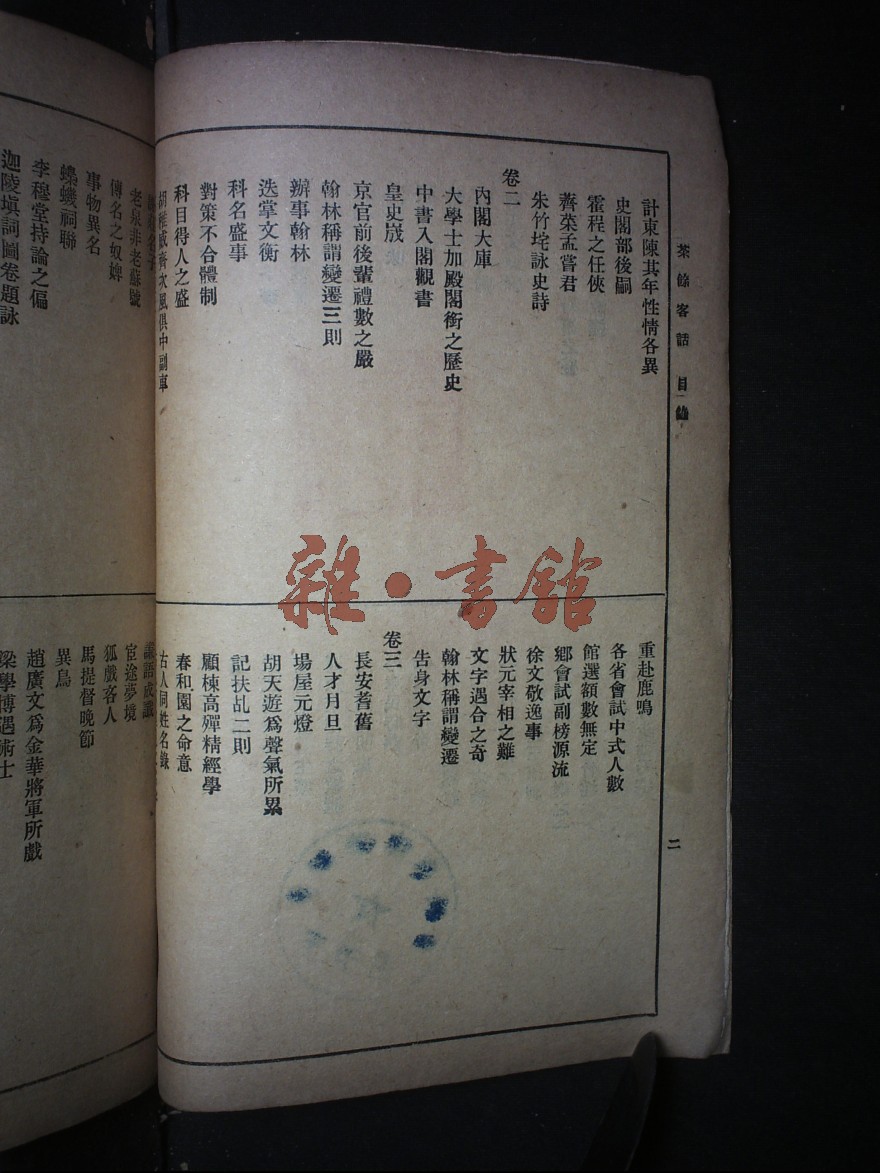 茶餘客話 目錄
二
計東陳其年性情各異
史閣部後嗣
霍程之任俠
薺菜孟嘗君
朱竹垞詠史詩
卷二
內閣大庫
大學士加殿閣銜之歷史
中書入閣觀書
皇史宬
京官前後輩禮數之嚴
翰林稱謂變遷三則
辦事翰林
迭掌文衡
科名盛事
對策不合體制
科目得人之盛
胡稚威齊次風俱中副車
重赴鹿鳴
各省會試中式人數
館選額數無定
鄉會試副榜源流
徐文敬逸事
狀元宰相之難
文字遇合之奇
翰林稱謂變遷
告身文字
卷三
長安耆舊
人才月旦
場屋元燈
胡天遊爲聲氣所累
記扶乩二則
顧棟高殫精經學
春和園之命意
古人同姓名錄
老泉非老蘇號
傳名之奴婢
事物異名
蠑螈祠聯
李穆堂持論之偏
迦陵塡詞圖卷題詠
讖語成讖
宦途夢境
狐戲客人
馬提督晚節
異鳥
趙廣文爲金華將軍所戲
梁學博遇術士
雜·書館